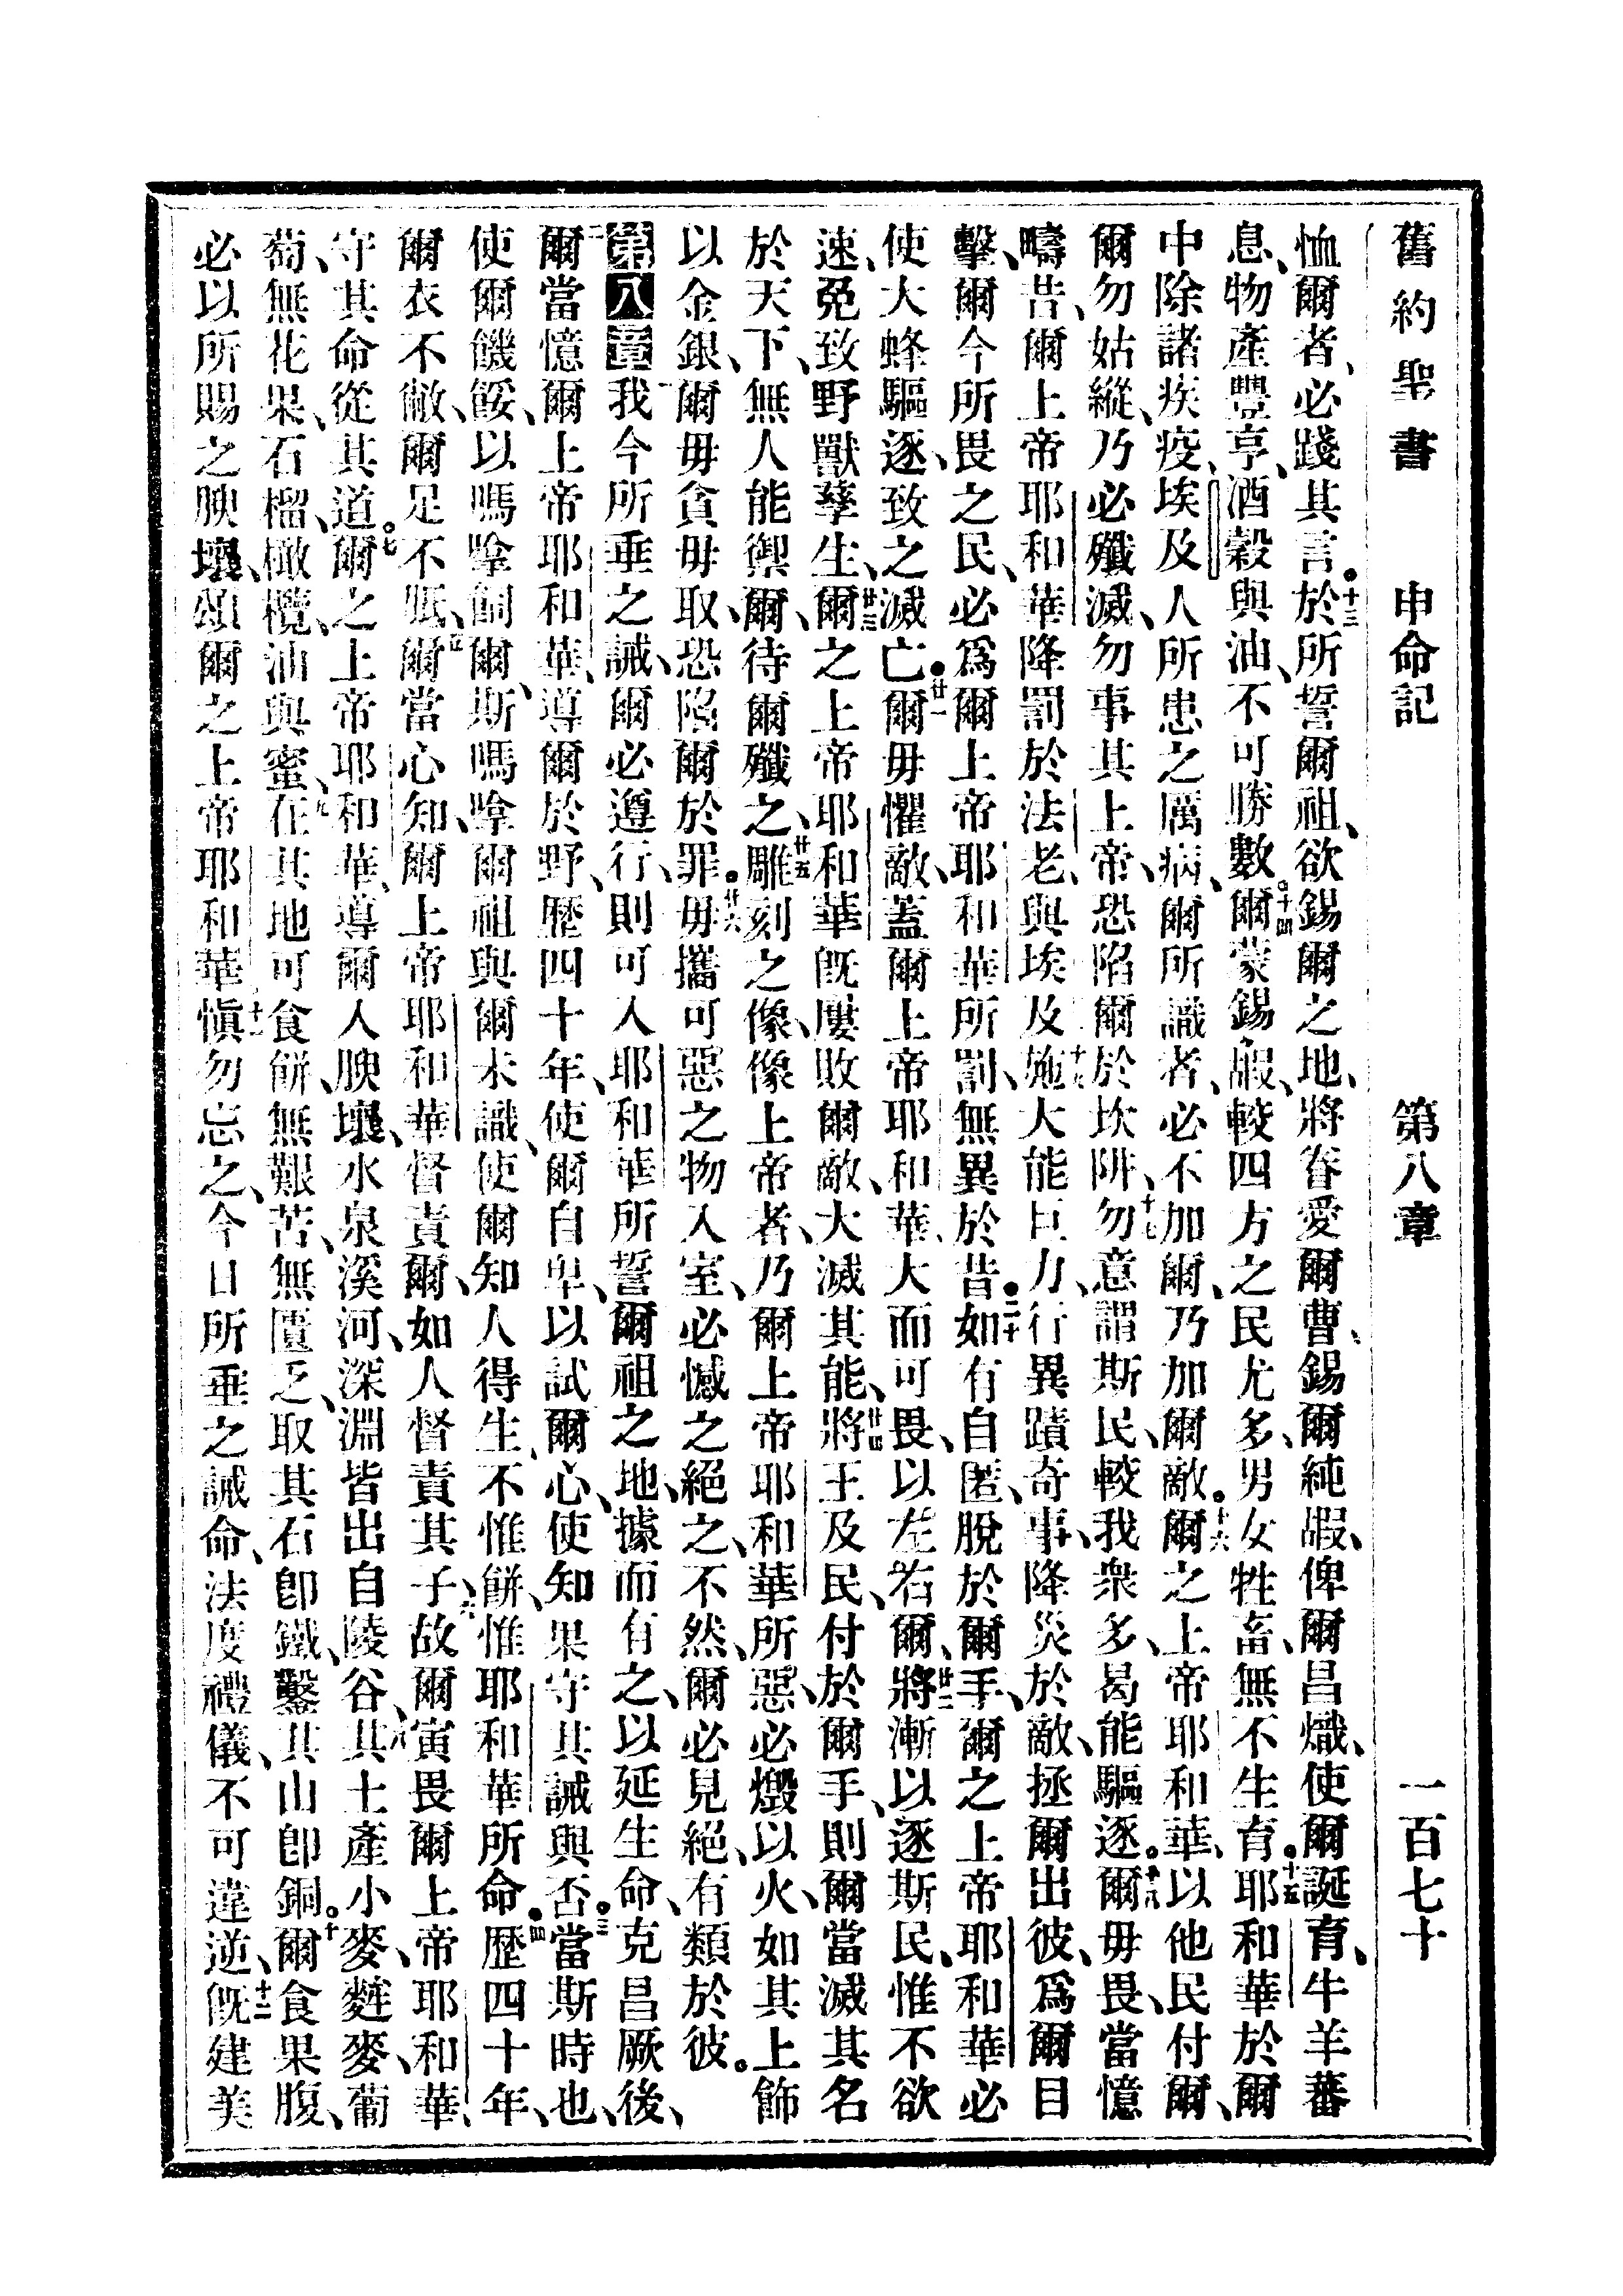 舊約聖書 申命記 第八章 一百七十
恤爾者、必踐其言。十三於所誓爾祖、欲錫爾之地、將眷愛爾曹、錫爾純嘏、俾爾昌熾、使爾誕育、牛羊蕃
息、物產豐亨、酒穀與油、不可勝數。十四爾蒙錫嘏、較四方之民尤多、男女牲畜、無不生育。十五耶和華於爾
中除諸疾疫、埃及人所患之厲病、爾所識者、必不加爾、乃加爾敵。十六爾之上帝耶和華、以他民付爾、
爾勿姑縱、乃必殲滅、勿事其上帝、恐陷爾於坎阱、十七勿意謂斯民、較我衆多、曷能驅逐。十八爾毋畏、當憶
疇昔、爾上帝耶和華降罰於法老、與埃及、十九施大能巨力、行異蹟奇事、降災於敵、拯爾出彼、爲爾目
擊、爾今所畏之民、必爲爾上帝耶和華所罰、無異於昔。二十如有自匿、脫於爾手、爾之上帝耶和華必
使大蜂驅逐、致之滅亡。廿一爾毋懼敵、蓋爾上帝耶和華、大而可畏、以左右爾、廿二將漸以逐斯民、惟不欲
速、免致野獸孳生、廿三爾之上帝耶和華旣屢敗爾敵、大滅其能、廿四將王及民、付於爾手、則爾當滅其名
於天下、無人能禦爾、待爾殲之、廿五雕刻之像、像上帝者、乃爾上帝耶和華所惡、必燬以火、如其上飾
以金銀、爾毋貪毋取、恐陷爾於罪。廿六毋攜可惡之物入室、必憾之絕之、不然、爾必見絕、有類於彼。
第八章 一我今所垂之誡、爾必遵行、則可入耶和華所誓爾祖之地、據而有之、以延生命、克昌厥後、
二爾當憶爾上帝耶和華、導爾於野、歷四十年、使爾自卑、以試爾心、使知果守其誡與否。三當斯時也、
使爾饑餒、以嗎嗱飼爾、斯嗎嗱爾祖與爾未識、使爾知人得生、不惟餅、惟耶和華所命。四歷四十年、
爾衣不敝、爾足不胝、五爾當心知、爾上帝耶和華督責爾、如人督責其子、六故爾寅畏爾上帝耶和華、
守其命、從其道。七爾之上帝耶和華、導爾入腴壤、水泉溪河、深淵皆出自陵谷、八其土產小麥、麰麥、葡
萄、無花果、石榴、橄欖、油與蜜、九在其地可食餅、無艱苦、無匱乏、取其石卽鐵、鑿其山卽銅。十爾食果腹、
必以所賜之腴壤、頌爾之上帝耶和華、十一愼勿忘之、今日所垂之誡命、法度禮儀、不可違逆、十二旣建美